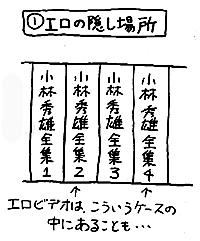 ①エロの隠し場所
小林秀雄全集1
小林秀雄全集2
小林秀雄全集3
小林秀雄全集4
エロビデオは、こういうケースの
中にあることも…